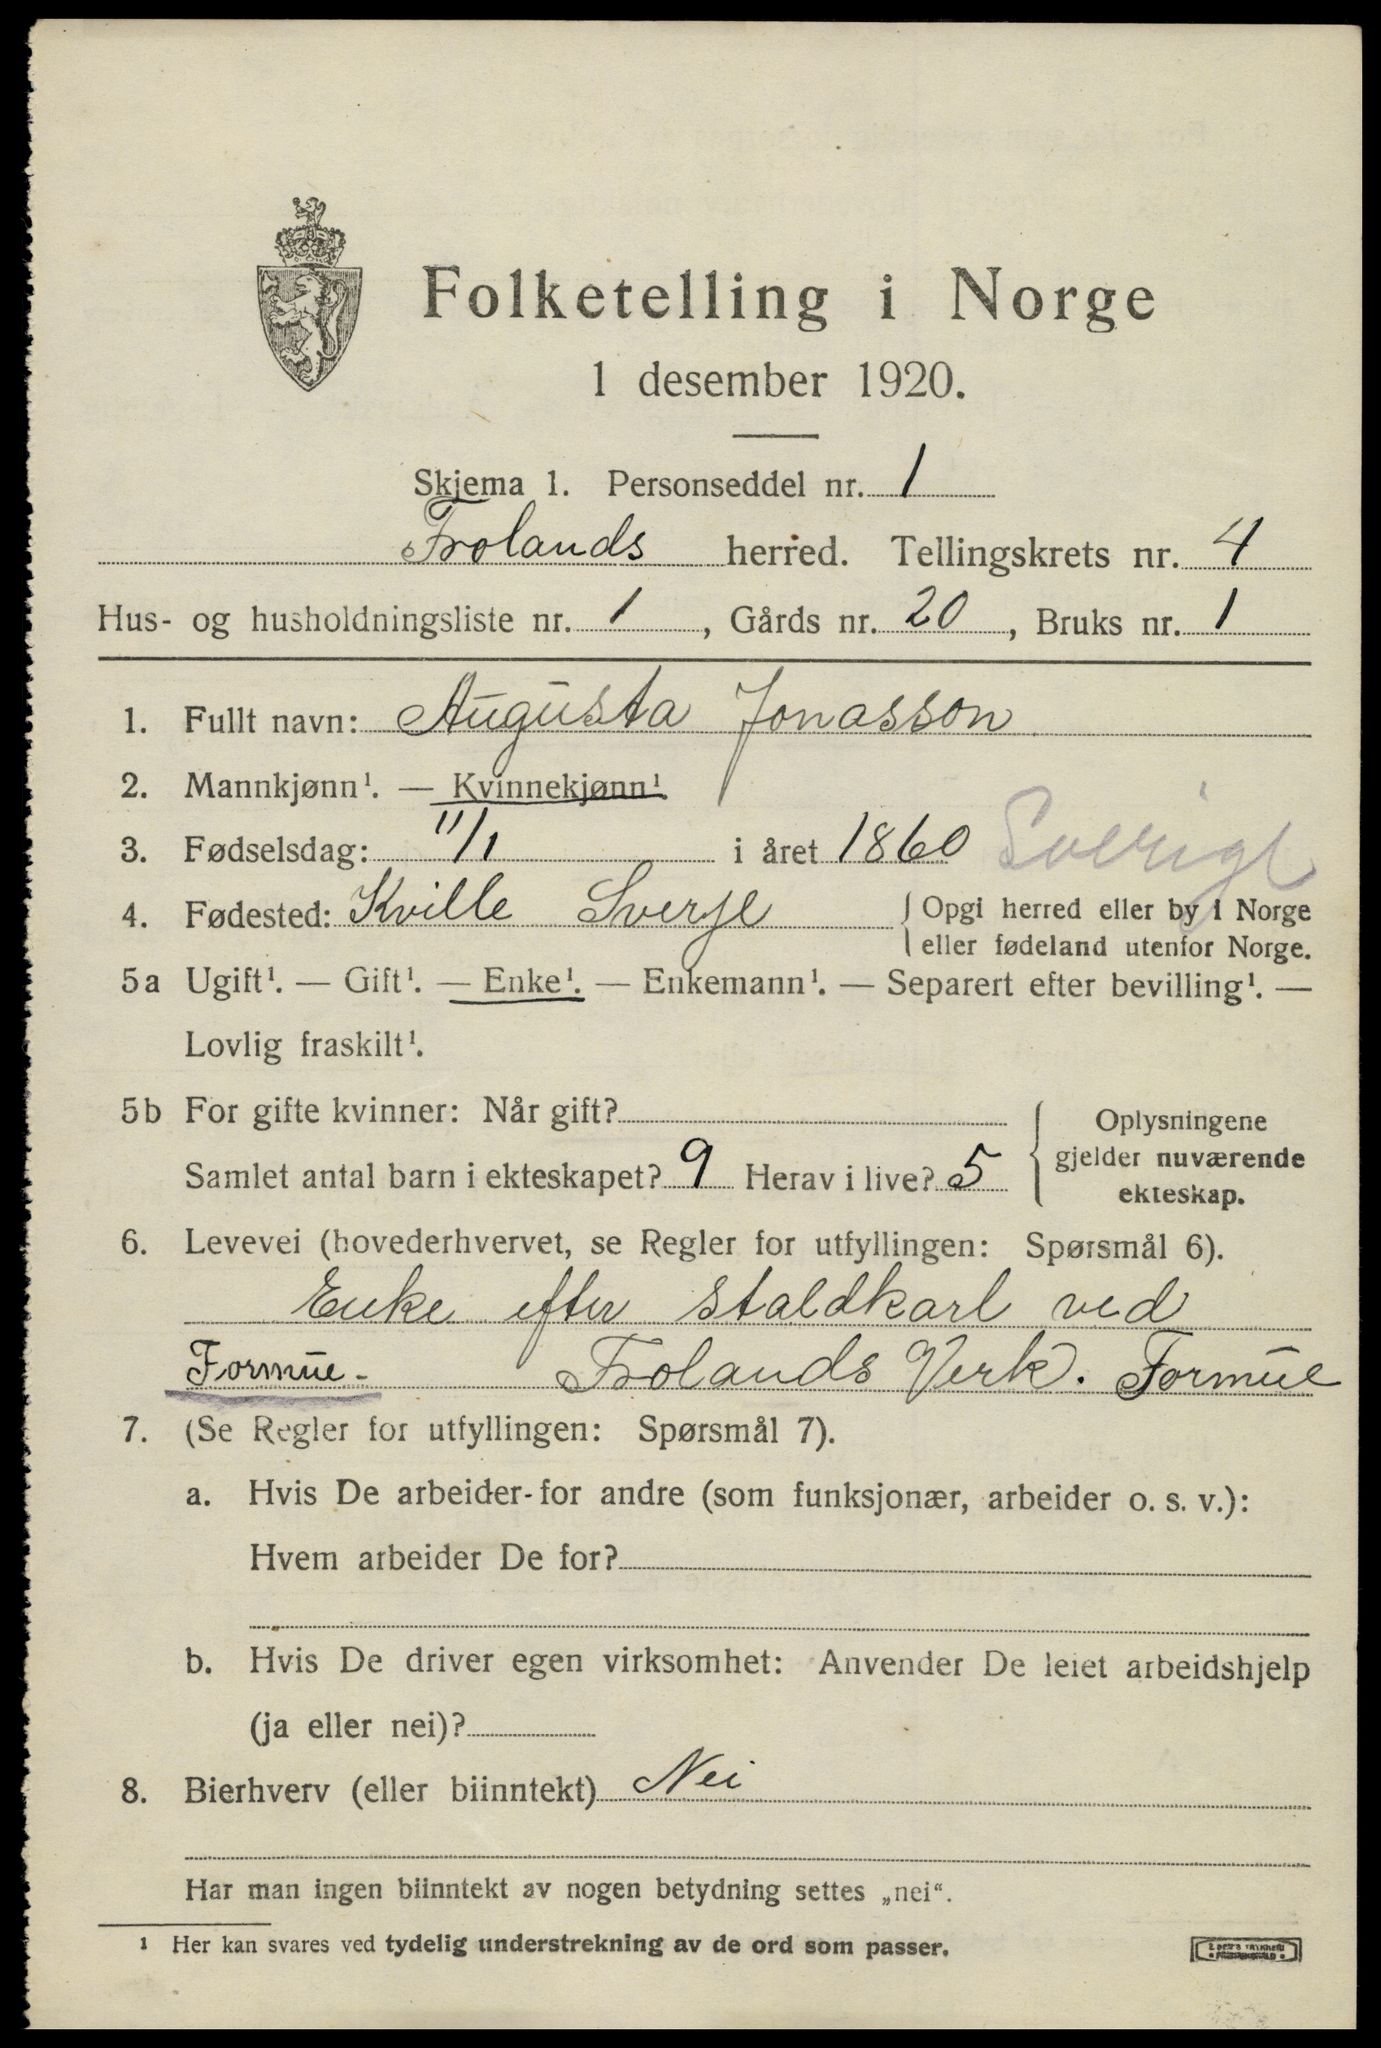 Folketelling i Norge
1 desember 1920.
Skjema 1. Personseddel nr. 1
Frolands herred. Tellingskrets nr. 4
Hus- og husholdningsliste nr. 1, Gårds nr. 20, Bruks nr. 1
1. Fullt navn: Augusta Jonasson
2. Mannkjønn¹. — Kvinnekjønn¹.
3. Fødselsdag: 11/1 i året 1860 Sverige
4. Fødested: Kville Sverje { Opgi herred eller by i Norge
eller fødeland utenfor Norge.
5a Ugift¹. — Gift¹. — Enke¹. — Enkemann¹. — Separert efter bevilling¹. —
Lovlig fraskilt¹.
5b For gifte kvinner: Når gift?
Samlet antal barn i ekteskapet? 9 Herav i live? 5
{ Oplysningene
gjelder nuværende
ekteskap.
6. Levevei (hovederhvervet, se Regler for utfyllingen: Spørsmål 6).
Enke efter staldkarl ved
Formue - Frolands Verk. Formue
7. (Se Regler for utfyllingen: Spørsmål 7).
a. Hvis De arbeider for andre (som funksjonær, arbeider o. s. v.):
Hvem arbeider De for?
b. Hvis De driver egen virksomhet: Anvender De leiet arbeidshjelp
(ja eller nei)?
8. Bierhverv (eller biinntekt) Nei
Har man ingen biinntekt av nogen betydning settes „nei“.
¹ Her kan svares ved tydelig understrekning av de ord som passer.